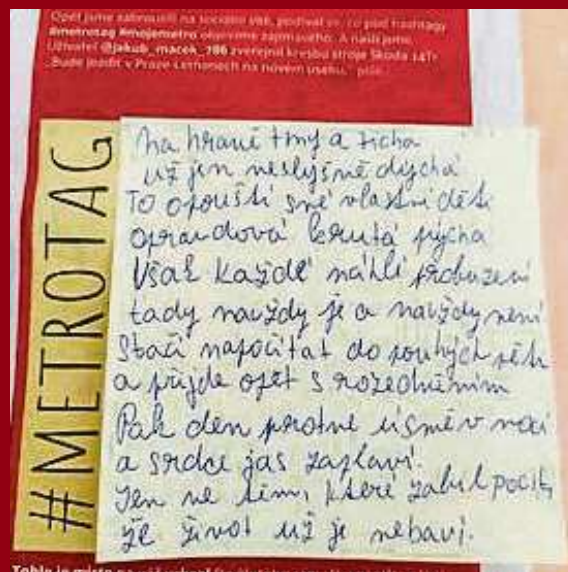 Opět jsme zabrousili na sociální sítě, podívat se, co pod hashtagy
#metrotag #mojemetro objevíme zajímavého. A našli jsme.
Uživatel @jakub_macek_786 zveřejnil kresbu stroje Škoda 14Tr
„Bude jezdit v Praze Letňanech na novém úseku,“ píše
#METROTAG
Na hraně tmy a ticha
už jen neslyšně dýchá
To opouští své vlastní děti
opravdová krutá pýcha
Však každé náhlé probuzení
tady navždy je a navždy není
Stačí napočítat do pouhých pěti
a přijde opět s rozedněním
Pak den protne úsměv noci
a srdce jas zaplaví.
Jen ne těm, které zabil pocit,
že život už je nebaví.